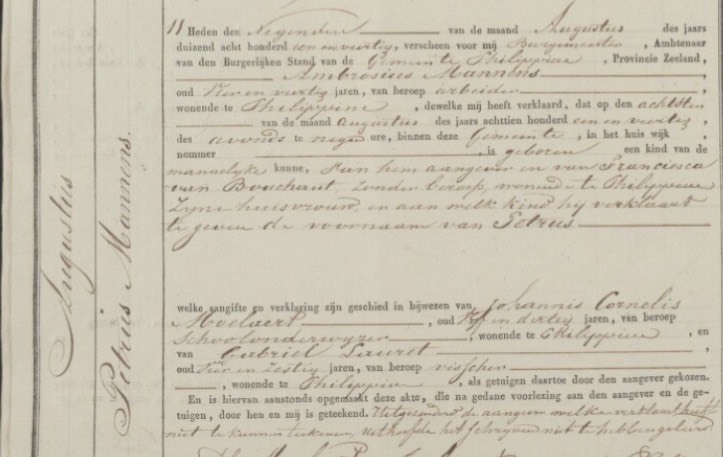 Augustus
Petrus Mannens.
11 Heden den Negenden van de maand Augustus des jaars
duizend acht honderd een en veertig, verscheen voor mij Burgemeester, Ambtenaar
van den Burgerlijken Stand van de Gemeente Philippine, Provincie Zeeland,
Ambrosius Mannens
oud en veertig jaren, van beroep arbeider
wonende te Philippine, dewelke mij heeft verklaard, dat op den achtsten
van de maand Augustus des jaars achttien honderd een en veertig,
des avonds te negen ure, binnen deze Gemeente, in het huis wijk
nommer , is geboren een kind van de
mannelijke kunne, Aan hem aangever en van Franciesca
van Bouchaut, zonder beroep, wonende te Philippine
zijne huisvrouw, en aan welk kind hij verklaart
te geven de voornaam van Petrus
welke aangifte en verklaring zijn geschied in bijwezen van Johannis Cornelis
Moelaert, oud en dertig jaren, van beroep
Schoolonderwijzer, wonende te Philippine, en
van Gabriel Lauret
oud Vier en Zestig jaren, van beroep visscher
, wonende te Philippine, als getuigen daartoe door den aangever gekozen.
En is hiervan aanstonds opgemaakt deze akte, die na gedane voorlezing aan den aangever en de ge-
tuigen, door hen en mij is geteekend. Uitgezonderd de aangever welke verklaart heeft
niet te kunnen teekenen, uit hoofde het schrijven niet te hebben geleerd.